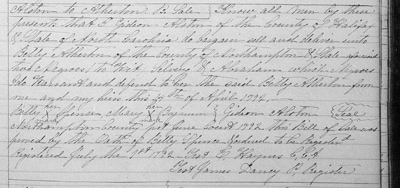 Alston to Atherton B. Sale Know all men by these
presents that I Gideon Alston of the County of Halifax
& State of North Carolina do bargain sell and deliver unto
Betty Atherton of the County of Northampton & State
two Negroes, to Wit Silvia & Abraham which Negroes
I do Warrant and defend to her the said Betty Atherton from
me and my heirs this day of April 1792.
Betty Spencer Mary Gideon Alston Seal
Northampton County June Court 1792 this Bill of Sale was
proved by the Oath of Betty Spence Ordered to be Registered
Registered July the 1792
Test James Register